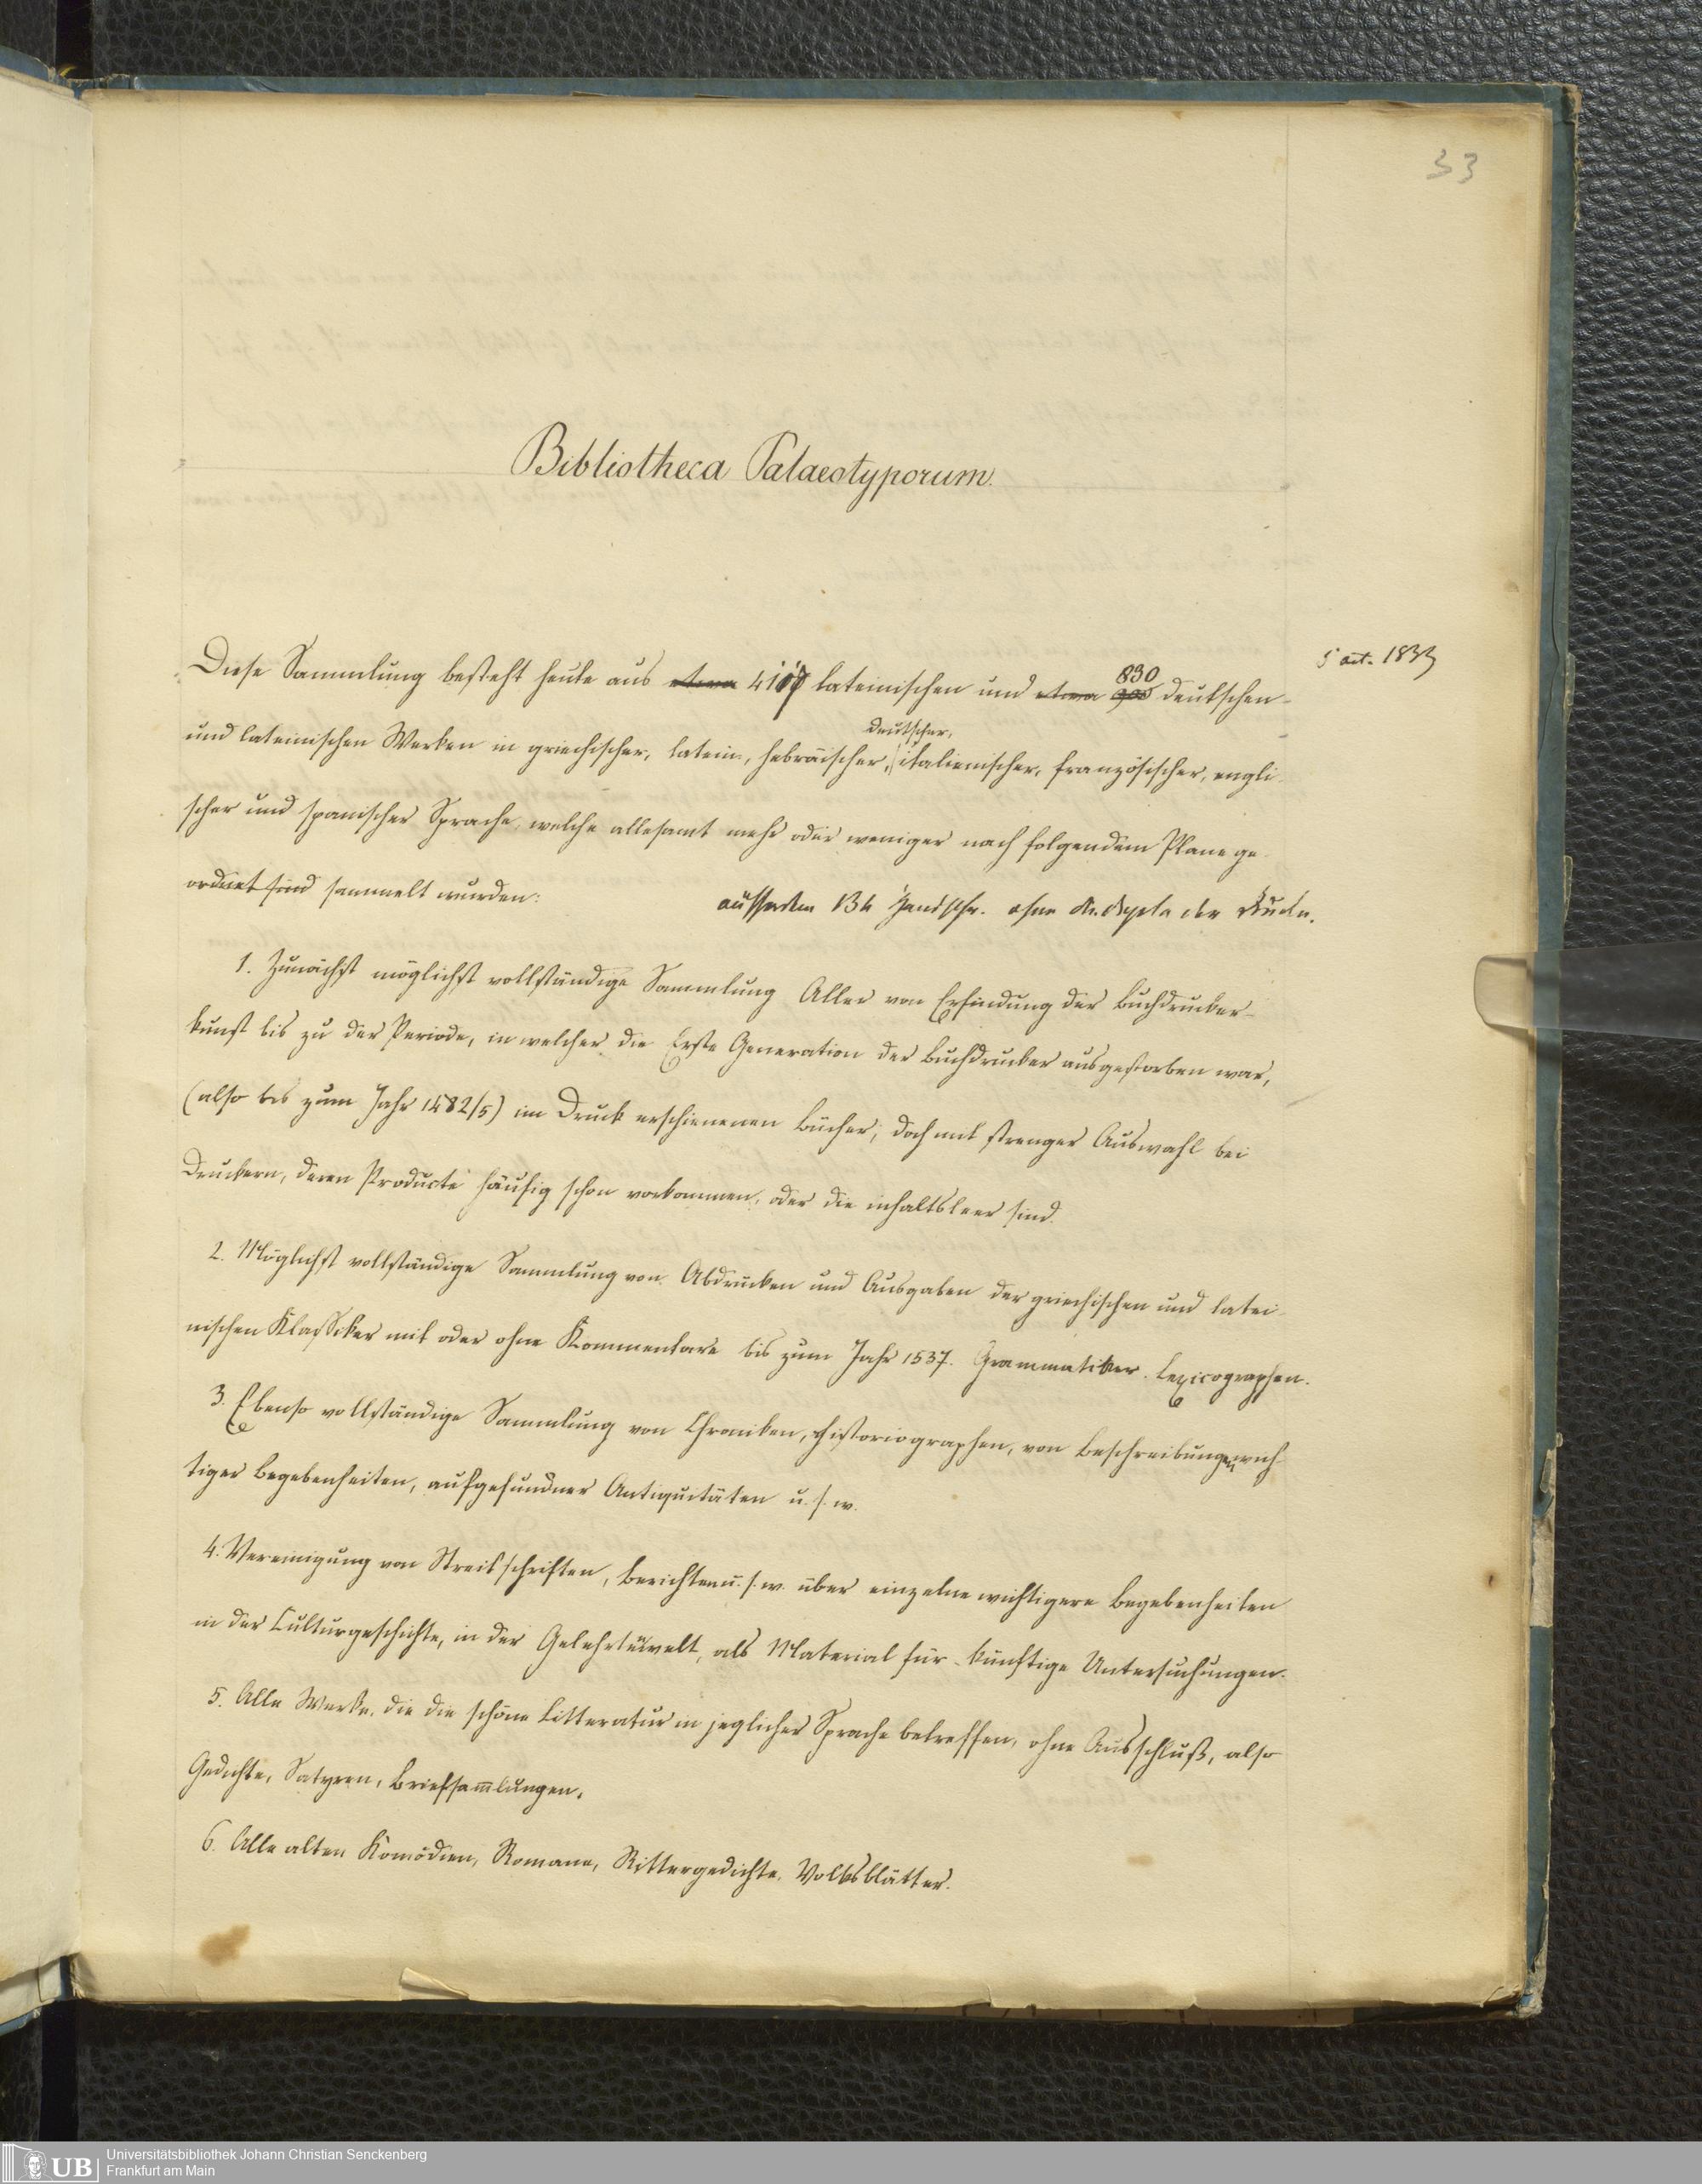 33
Bibliotheca Palaeotyporum.
5 oct. 1833
Diese Sammlung besteht heute aus etwa lateinischen und etwa 900 830 deutschen
und lateinischen Werken in griechischer, latein., hebräischer, deutscher, italienischer, französischer, engli-
scher und spanischer Sprache, welche allesamt mehr oder weniger nach folgendem Plane ge-
ordnet sind sammelt wurden:
ausserdem 134 Handschr. ohne die der
1. Zunächst möglichst vollständige Sammlung Aller von Erfindung der Buchdrucker-
kunst bis zu der Periode, in welcher die Erste Generation der Buchdrucker ausgestorben war,
(also bis zum Jahr 1482/5) im Druck erschienenen Bücher; doch mit strenger Auswahl bei
Druckern, deren Producte häufig schon vorkommen, oder die inhaltsleer sind.
2. Möglichst vollständige Sammlung von Abdrucken und Ausgaben der griechischen und latei-
nischen Klassiker mit oder ohne Kommentare bis zum Jahr 1537. Grammatiker. Lexicographen.
3. Ebenso vollständige Sammlung von Chroniken, Historiographen, von Beschreibungen wich-
tiger Begebenheiten, aufgefundner Antiquitäten u. s. w.
4. Vereinigung von Streitschriften, Berichten u. s. w. über einzelne wichtigere Begebenheiten
in der Culturgeschichte, in der Gelehrtenwelt, als Material für künftige Untersuchungen.
5. Alle Werke, die die schöne Litteratur in jeglicher Sprache betreffen, ohne Ausschluß, also
Gedichte, Satyren, Briefsam̄lungen.
6. Alle alten Komödien, Romane, Rittergedichte, Volksblätter.
UB
Universitätsbibliothek Johann Christian Senckenberg
Frankfurt am Main